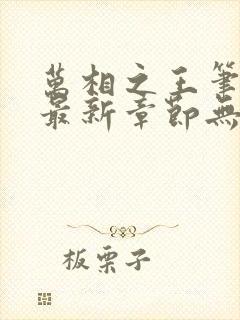 萬相之王筆
最新章節無
板栗子